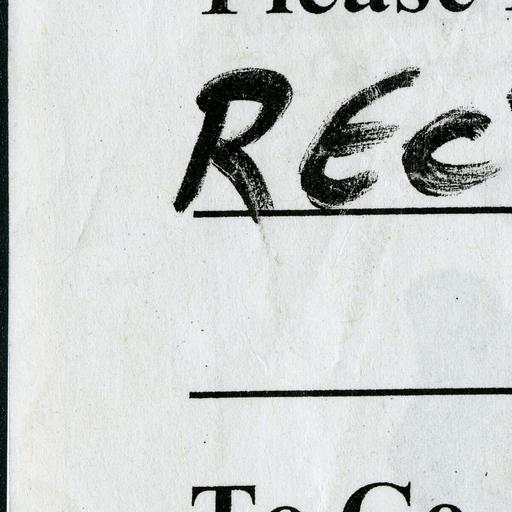 Please
REC'
To Go